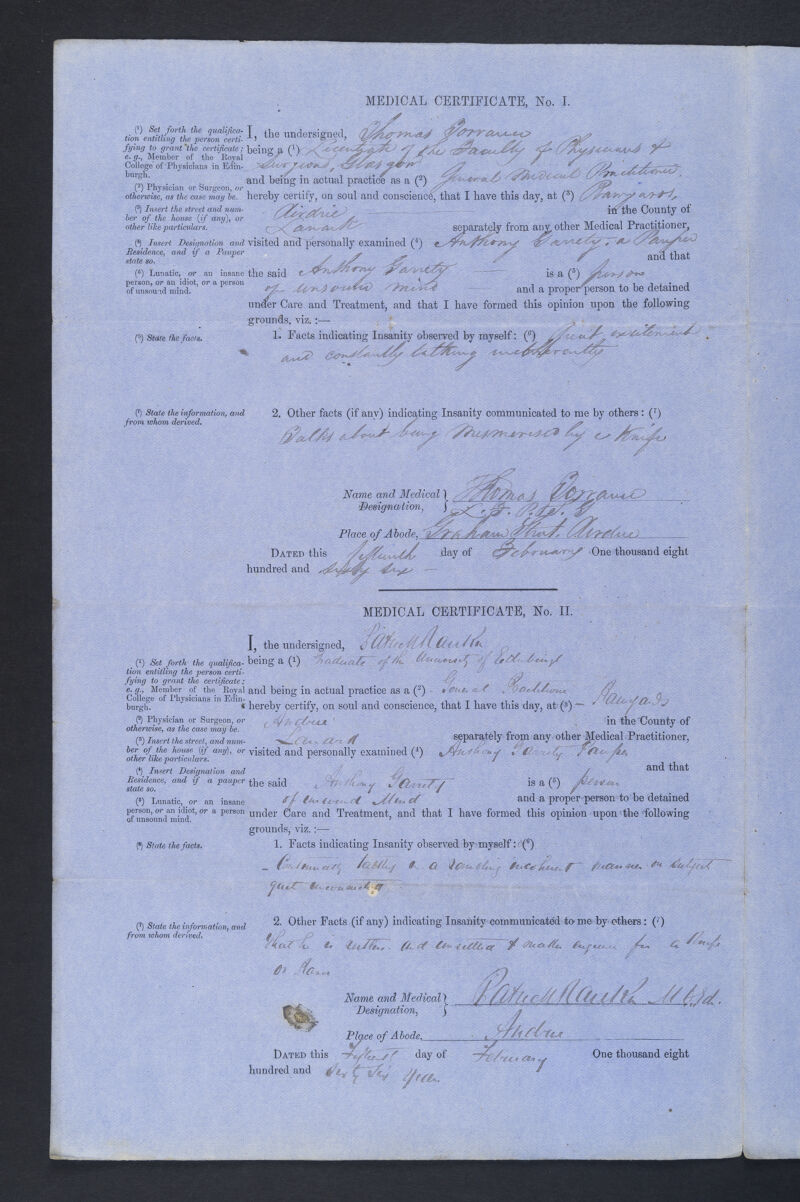 MEDICAL CERTIFICATE, No. I.
(¹) Set forth the qualifica-
tion entitling the person certi-
fying to grant the certificate;
e. g., Member of the Royal
College of Physicians in Edin-
burgh.
(²) Physician or Surgeon, or
otherwise, as the case may be.
(³) Insert the street and num-
ber of the house (if any), or
other like particulars.
(⁴) Insert Designation and
Residence, and if a Pauper
state so.
(⁵) Lunatic, or an insane
person, or an idiot, or a person
of unsound mind.
I, the undersigned, Thomas Torrance
being a (¹) Licentiate of the Faculty of Physicians &
Surgeons, Glasgow
and being in actual practice as a (²) General Medical Practitioner
hereby certify, on soul and conscience, that I have this day, at (³) Rawyards,
Airdrie in the County of
Lanark separately from any other Medical Practitioner,
visited and personally examined (⁴) Anthony Garrety, a Pauper
and that
the said Anthony Garrety is a (⁵) person
of unsound mind and a proper person to be detained
under Care and Treatment, and that I have formed this opinion upon the following
grounds, viz. :—
(⁶) State the facts.
1. Facts indicating Insanity observed by myself: (⁶) Great excitement
and constantly talking incoherently
(⁷) State the information, and
from whom derived.
2. Other facts (if any) indicating Insanity communicated to me by others: (⁷)
Talks about being Mesmerised by a Knife
Name and Medical Designation, Thomas Torrance
L. F. P. & S. G
Place of Abode, Graham Street, Airdrie
DATED this fifteenth day of February One thousand eight
hundred and sixty six —
MEDICAL CERTIFICATE, No. II.
(¹) Set forth the qualifica-
tion entitling the person certi-
fying to grant the certificate;
e. g., Member of the Royal
College of Physicians in Edin-
burgh.
(²) Physician or Surgeon, or
otherwise, as the case may be.
(³) Insert the street, and num-
ber of the house (if any), or
other like particulars.
(⁴) Insert Designation and
Residence, and if a pauper
state so.
(⁵) Lunatic, or an insane
person, or an idiot, or a person
of unsound mind.
I, the undersigned, Patrick Rankin
being a (¹) Graduate of the University of Edinburgh
and being in actual practice as a (²) General Practitioner
hereby certify, on soul and conscience, that I have this day, at (³) — Rawyards
Airdrie in the County of
Lanark separately from any other Medical Practitioner,
visited and personally examined (⁴) Anthony Garrety Pauper
and that
the said Anthony Garrety is a (⁵) person
of unsound Mind and a proper person to be detained
under Care and Treatment, and that I have formed this opinion upon the following
grounds, viz. :—
(⁶) State the facts.
1. Facts indicating Insanity observed by myself: (⁶)
- Continually talking in a rambling incoherent manner on subjects
quite unconnected
(⁷) State the information, and
from whom derived.
2. Other Facts (if any) indicating Insanity communicated to me by others: (⁷)
That he is restless and unsettled & makes enquiries for a Knife
or Razor
Name and Medical Designation, Patrick Rankin M.D. Ed.
Place of Abode, Airdrie
DATED this day of February One thousand eight
hundred and Sixty Six years